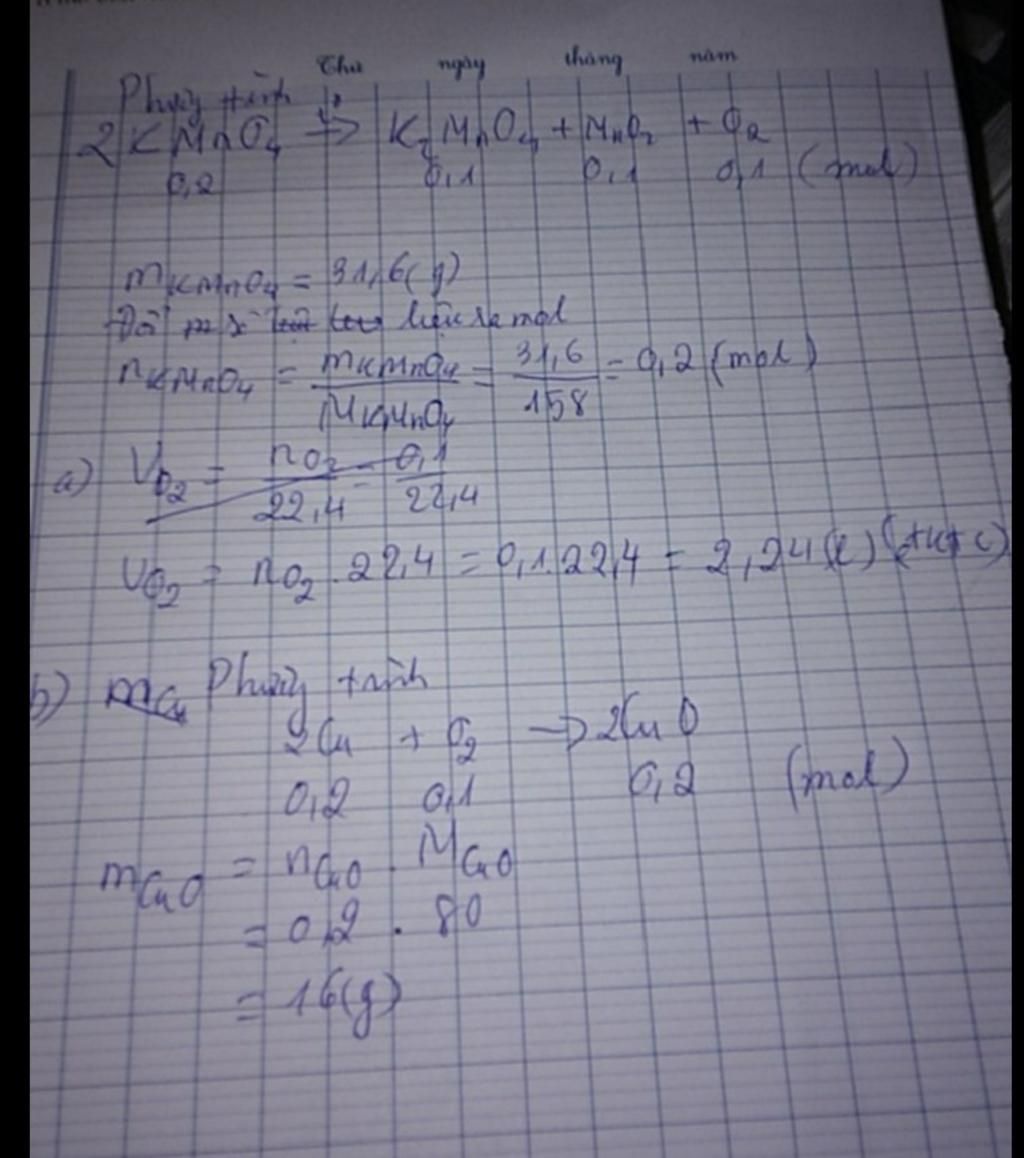 Thứ ngày tháng năm
Phương trình
2KMnO4 t° → K2MnO4 + MnO2 + O2
0,2 0,1 0,1 0,1 (mol)
mKMnO4 = 31,6(g)
Đổi số liệu ra mol
nKMnO4 = mKMnO4 / MKMnO4 = 31,6 / 158 = 0,2 (mol)
a) VO2 = nO2 / 22,4 = 0,1 / 22,4
VO2 = nO2 . 22,4 = 0,1.22,4 = 2,24(l) (đktc)
b) mCu Phương trình
2Cu + O2 → 2CuO
0,2 0,1 0,2 (mol)
mCuO = nCuO . MCuO
= 0,2 . 80
= 16(g)